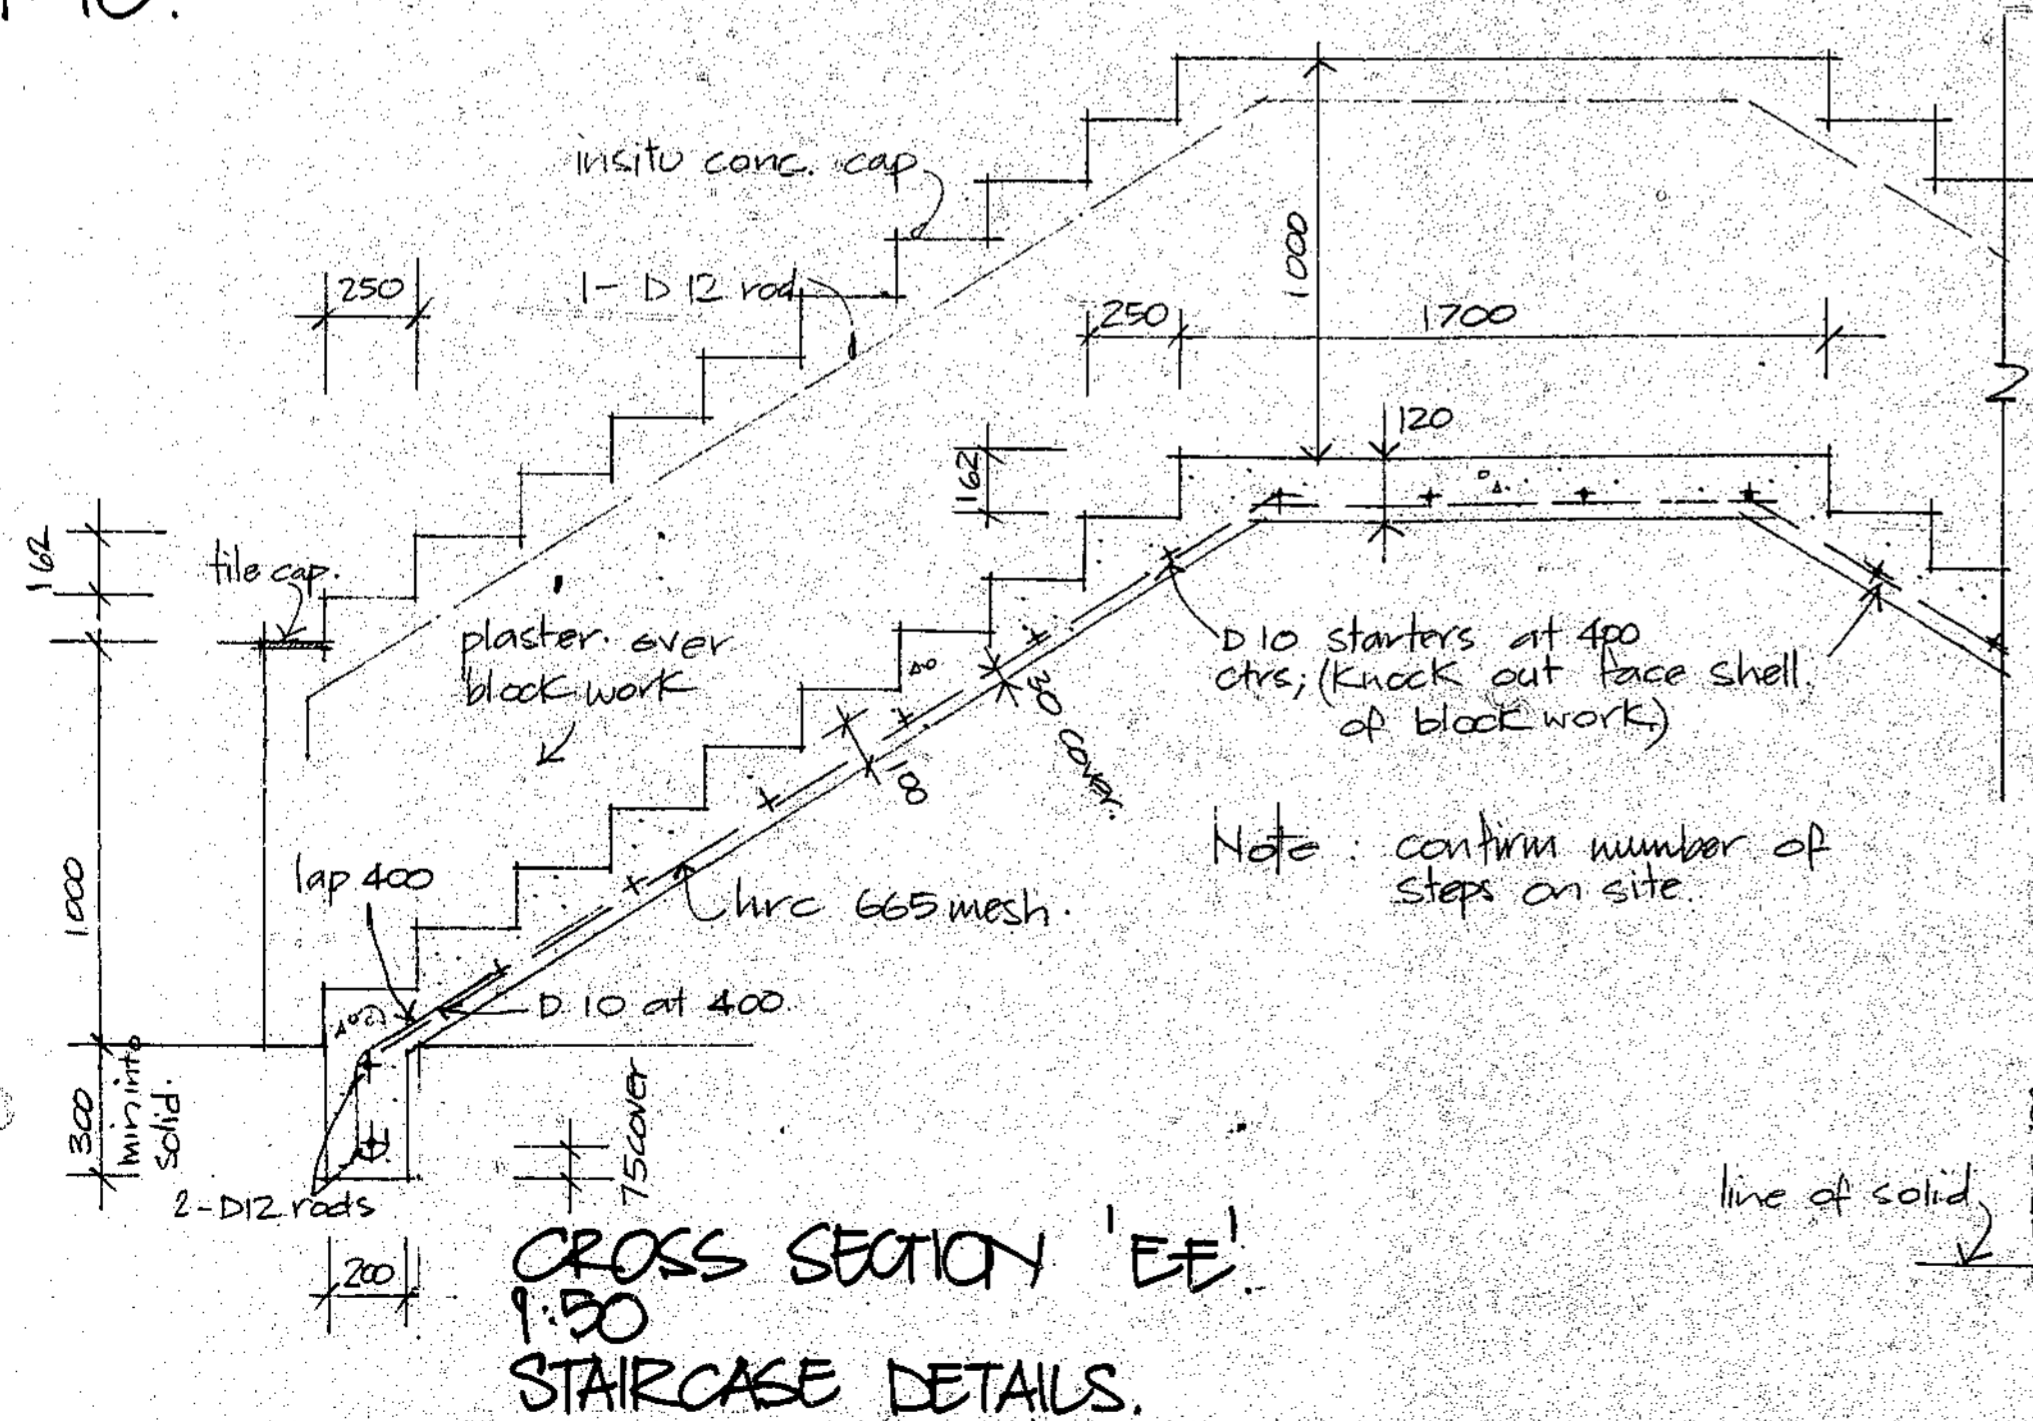 insitu conc. cap
1- D12 rod
250
1000
250
1700
120
162
162
tile cap.
plaster over
block work
D10 starters at 400
ctrs; (Knock out face shell
of block work)
30 cover.
Note : confirm number of
steps on site.
lap 400
hrc 665 mesh.
1000
D 10 at 400
300
min into
solid.
75 cover
2-D12 rods
200
line of solid
CROSS SECTION 'EE'.
1:50
STAIRCASE DETAILS.